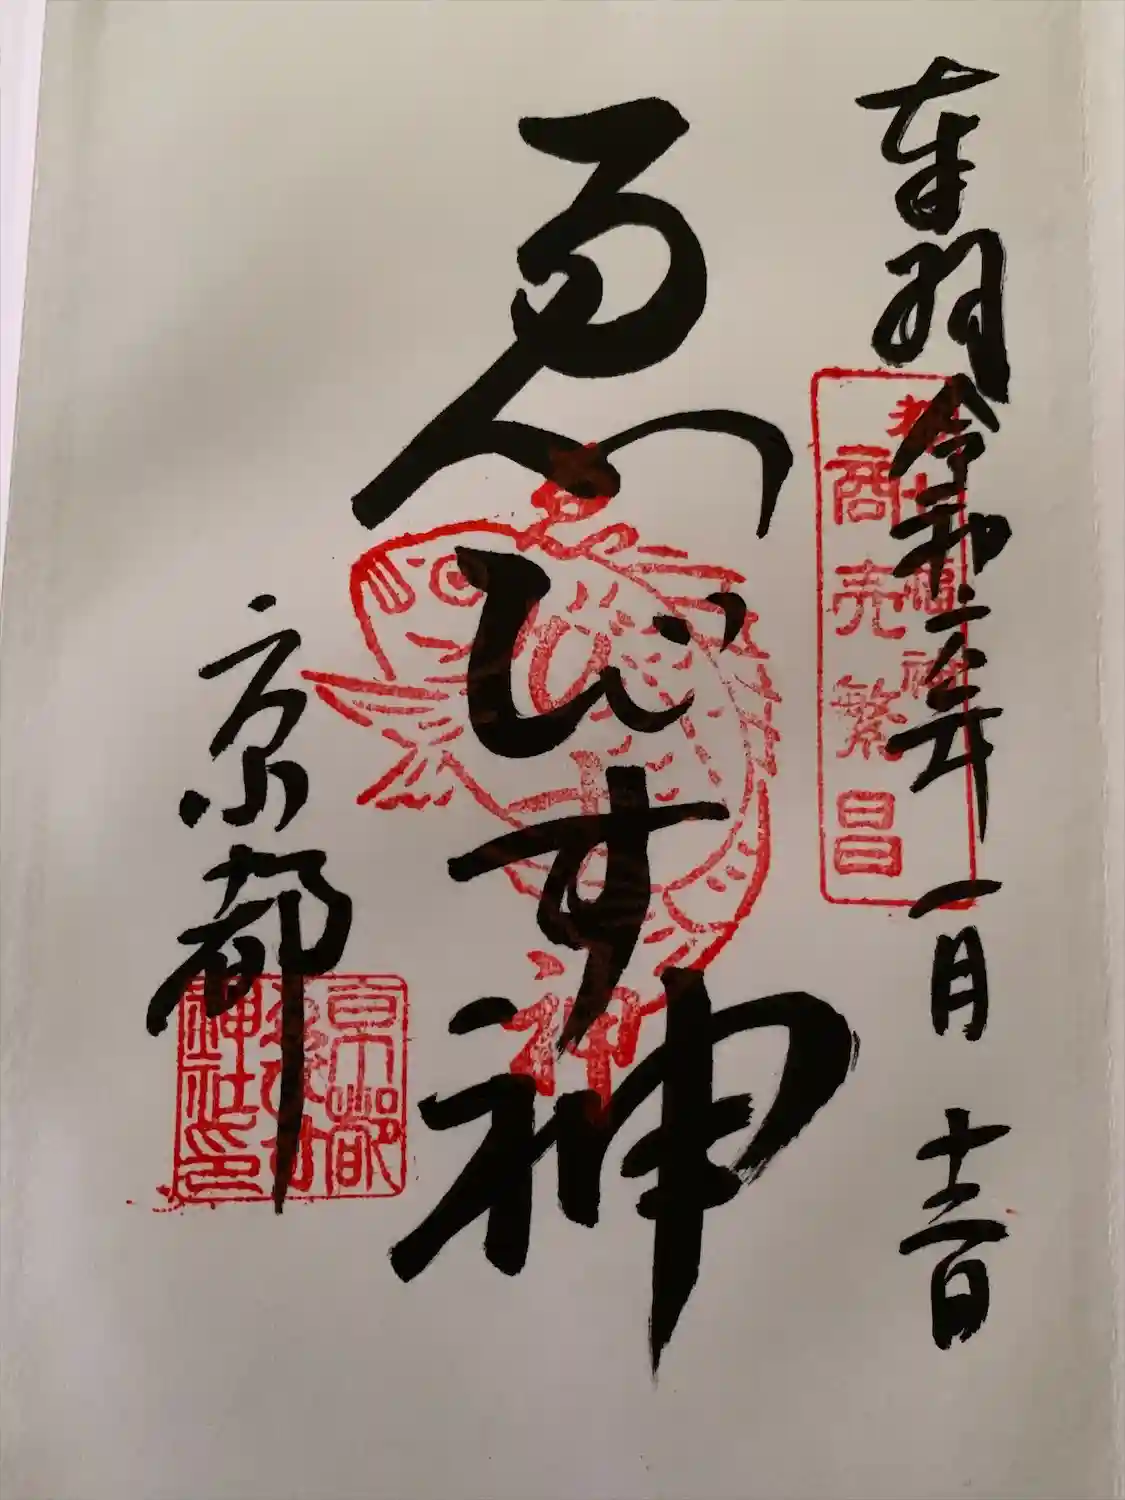 奉拝 令和二年 一月 十二日
都七福神
商売繁昌
ゑびす神
ゑびす神
京都
京都
神社印